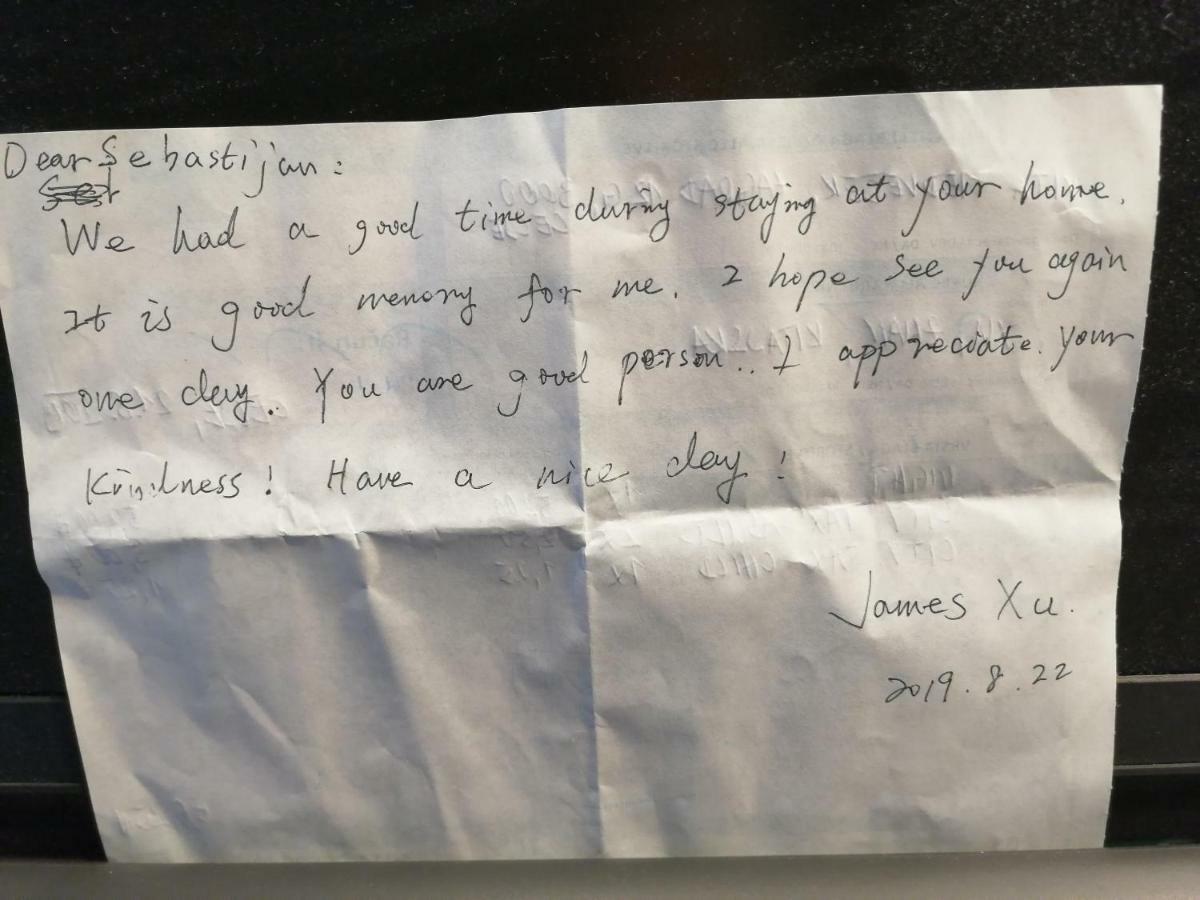 Dear Sebastijan:
We had a good time during staying at your home.
It is good memory for me. I hope see you again
one day.. You are good person.. I appreciate. your
Kindness! Have a nice day!
James Xu.
2019.8.22